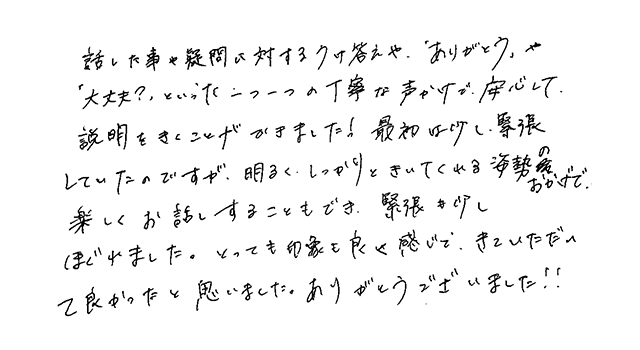 話した事や疑問に対するうけ答えや、「ありがとう」や
「大丈夫?」といった一つ一つの丁寧な声かけで、安心して、
説明をきくことができました! 最初は少し緊張
していたのですが、明るく、しっかりときいてくれる姿勢のおかげで、
楽しくお話しすることもでき、緊張も少し
ほぐれました。とっても印象も良く感じで、きていただい
て良かったと思いました。ありがとうございました!!